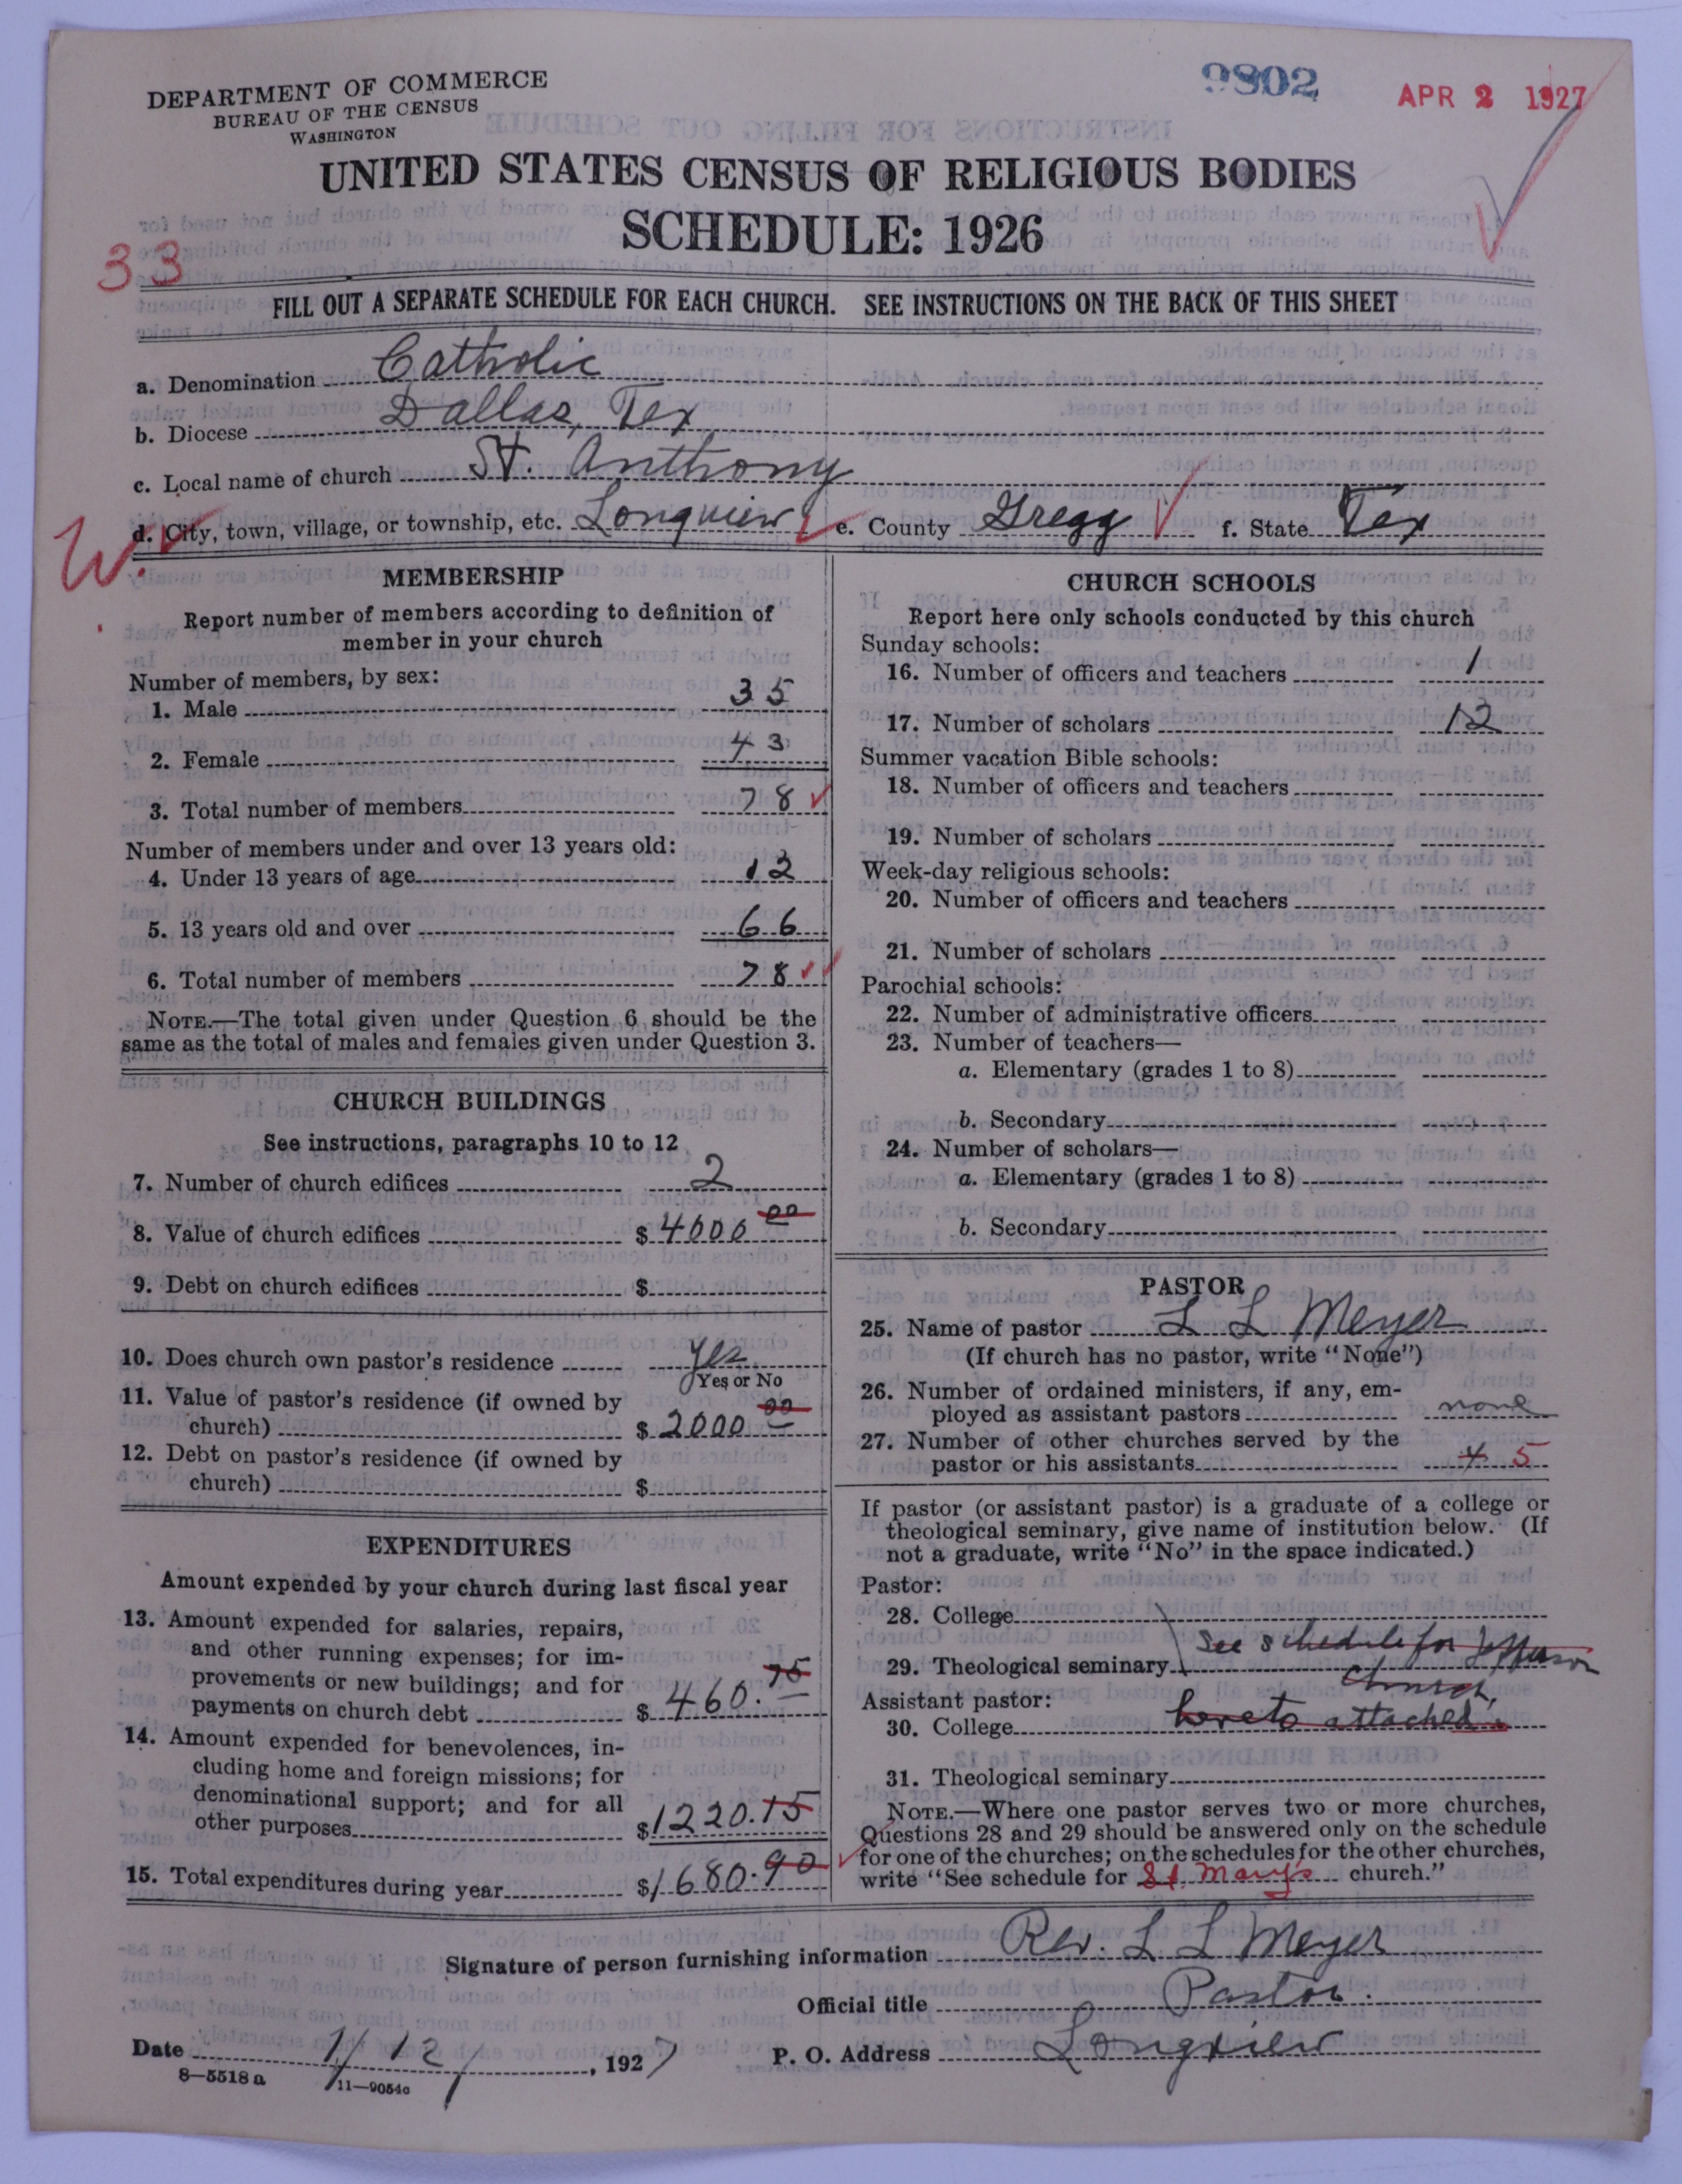 DEPARTMENT OF COMMERCE
BUREAU OF THE CENSUS
WASHINGTON
9802
APR 2 1927
UNITED STATES CENSUS OF RELIGIOUS BODIES
SCHEDULE: 1926
33
FILL OUT A SEPARATE SCHEDULE FOR EACH CHURCH. SEE INSTRUCTIONS ON THE BACK OF THIS SHEET
a. Denomination Catholic
b. Diocese Dallas, Tex
c. Local name of church St. Anthony
W.
d. City, town, village, or township, etc. Longview e. County Gregg f. State Tex
MEMBERSHIP
Report number of members according to definition of
member in your church
Number of members, by sex:
1. Male 35
2. Female 43
3. Total number of members 78
Number of members under and over 13 years old:
4. Under 13 years of age 12
5. 13 years old and over 66
6. Total number of members 78
NOTE.—The total given under Question 6 should be the
same as the total of males and females given under Question 3.
CHURCH BUILDINGS
See instructions, paragraphs 10 to 12
7. Number of church edifices 2
8. Value of church edifices $ 4000 00
9. Debt on church edifices $
10. Does church own pastor's residence yes
Yes or No
11. Value of pastor's residence (if owned by
church) $ 2000 00
12. Debt on pastor's residence (if owned by
church) $
EXPENDITURES
Amount expended by your church during last fiscal year
13. Amount expended for salaries, repairs,
and other running expenses; for im-
provements or new buildings; and for
payments on church debt $ 460.75
14. Amount expended for benevolences, in-
cluding home and foreign missions; for
denominational support; and for all
other purposes $ 1220.15
15. Total expenditures during year $ 1680.90
CHURCH SCHOOLS
Report here only schools conducted by this church
Sunday schools:
16. Number of officers and teachers 1
17. Number of scholars 12
Summer vacation Bible schools:
18. Number of officers and teachers
19. Number of scholars
Week-day religious schools:
20. Number of officers and teachers
21. Number of scholars
Parochial schools:
22. Number of administrative officers
23. Number of teachers—
a. Elementary (grades 1 to 8)
b. Secondary
24. Number of scholars—
a. Elementary (grades 1 to 8)
b. Secondary
PASTOR
25. Name of pastor L L Meyer
(If church has no pastor, write "None")
26. Number of ordained ministers, if any, em-
ployed as assistant pastors none
27. Number of other churches served by the
pastor or his assistants 4 5
If pastor (or assistant pastor) is a graduate of a college or
theological seminary, give name of institution below. (If
not a graduate, write "No" in the space indicated.)
Pastor:
28. College
See schedule for Jefferson
29. Theological seminary
church,
Assistant pastor:
30. College hereto attached.
31. Theological seminary
NOTE.—Where one pastor serves two or more churches,
Questions 28 and 29 should be answered only on the schedule
for one of the churches; on the schedules for the other churches,
write "See schedule for St. Mary's church."
Signature of person furnishing information Rev. L L Meyer
Official title Pastor.
Date 1/12/, 1927 P. O. Address Longview
8—5518 a 11—9054c